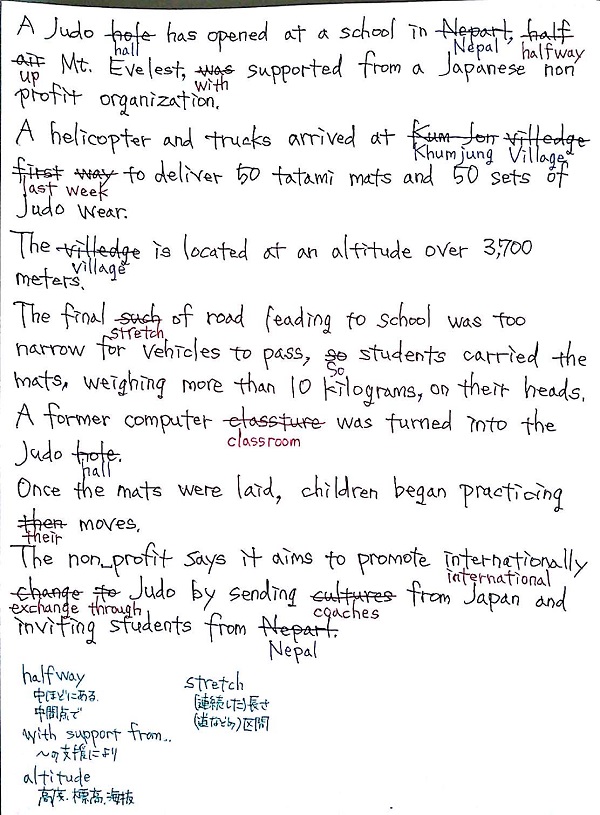 A Judo hole has opened at a school in Nepart, half
hall Nepal halfway
air Mt. Evelest, was supported from a Japanese non
up with
profit organization.
A helicopter and trucks arrived at Kum Jon villedge
Khumjung Village,
first way to deliver 50 tatami mats and 50 sets of
last week
Judo wear.
The villedge is located at an altitude over 3,700
village
meters.
The final such of road leading to school was too
stretch
narrow for vehicles to pass, so students carried the
So
mats, weighing more than 10 kilograms, on their heads.
A former computer classture was turned into the
classroom
Judo hole.
hall
Once the mats were laid, children began practicing
then moves.
their
The non_profit says it aims to promote internationally
international
change to Judo by sending cultures from Japan and
exchange through coaches
inviting students from Nepart.
Nepal
halfway
中ほどにある
中間点で
with support from..
〜の支援により
altitude
高度.標高.海抜
stretch
(連続した)長さ
(道などの)区間